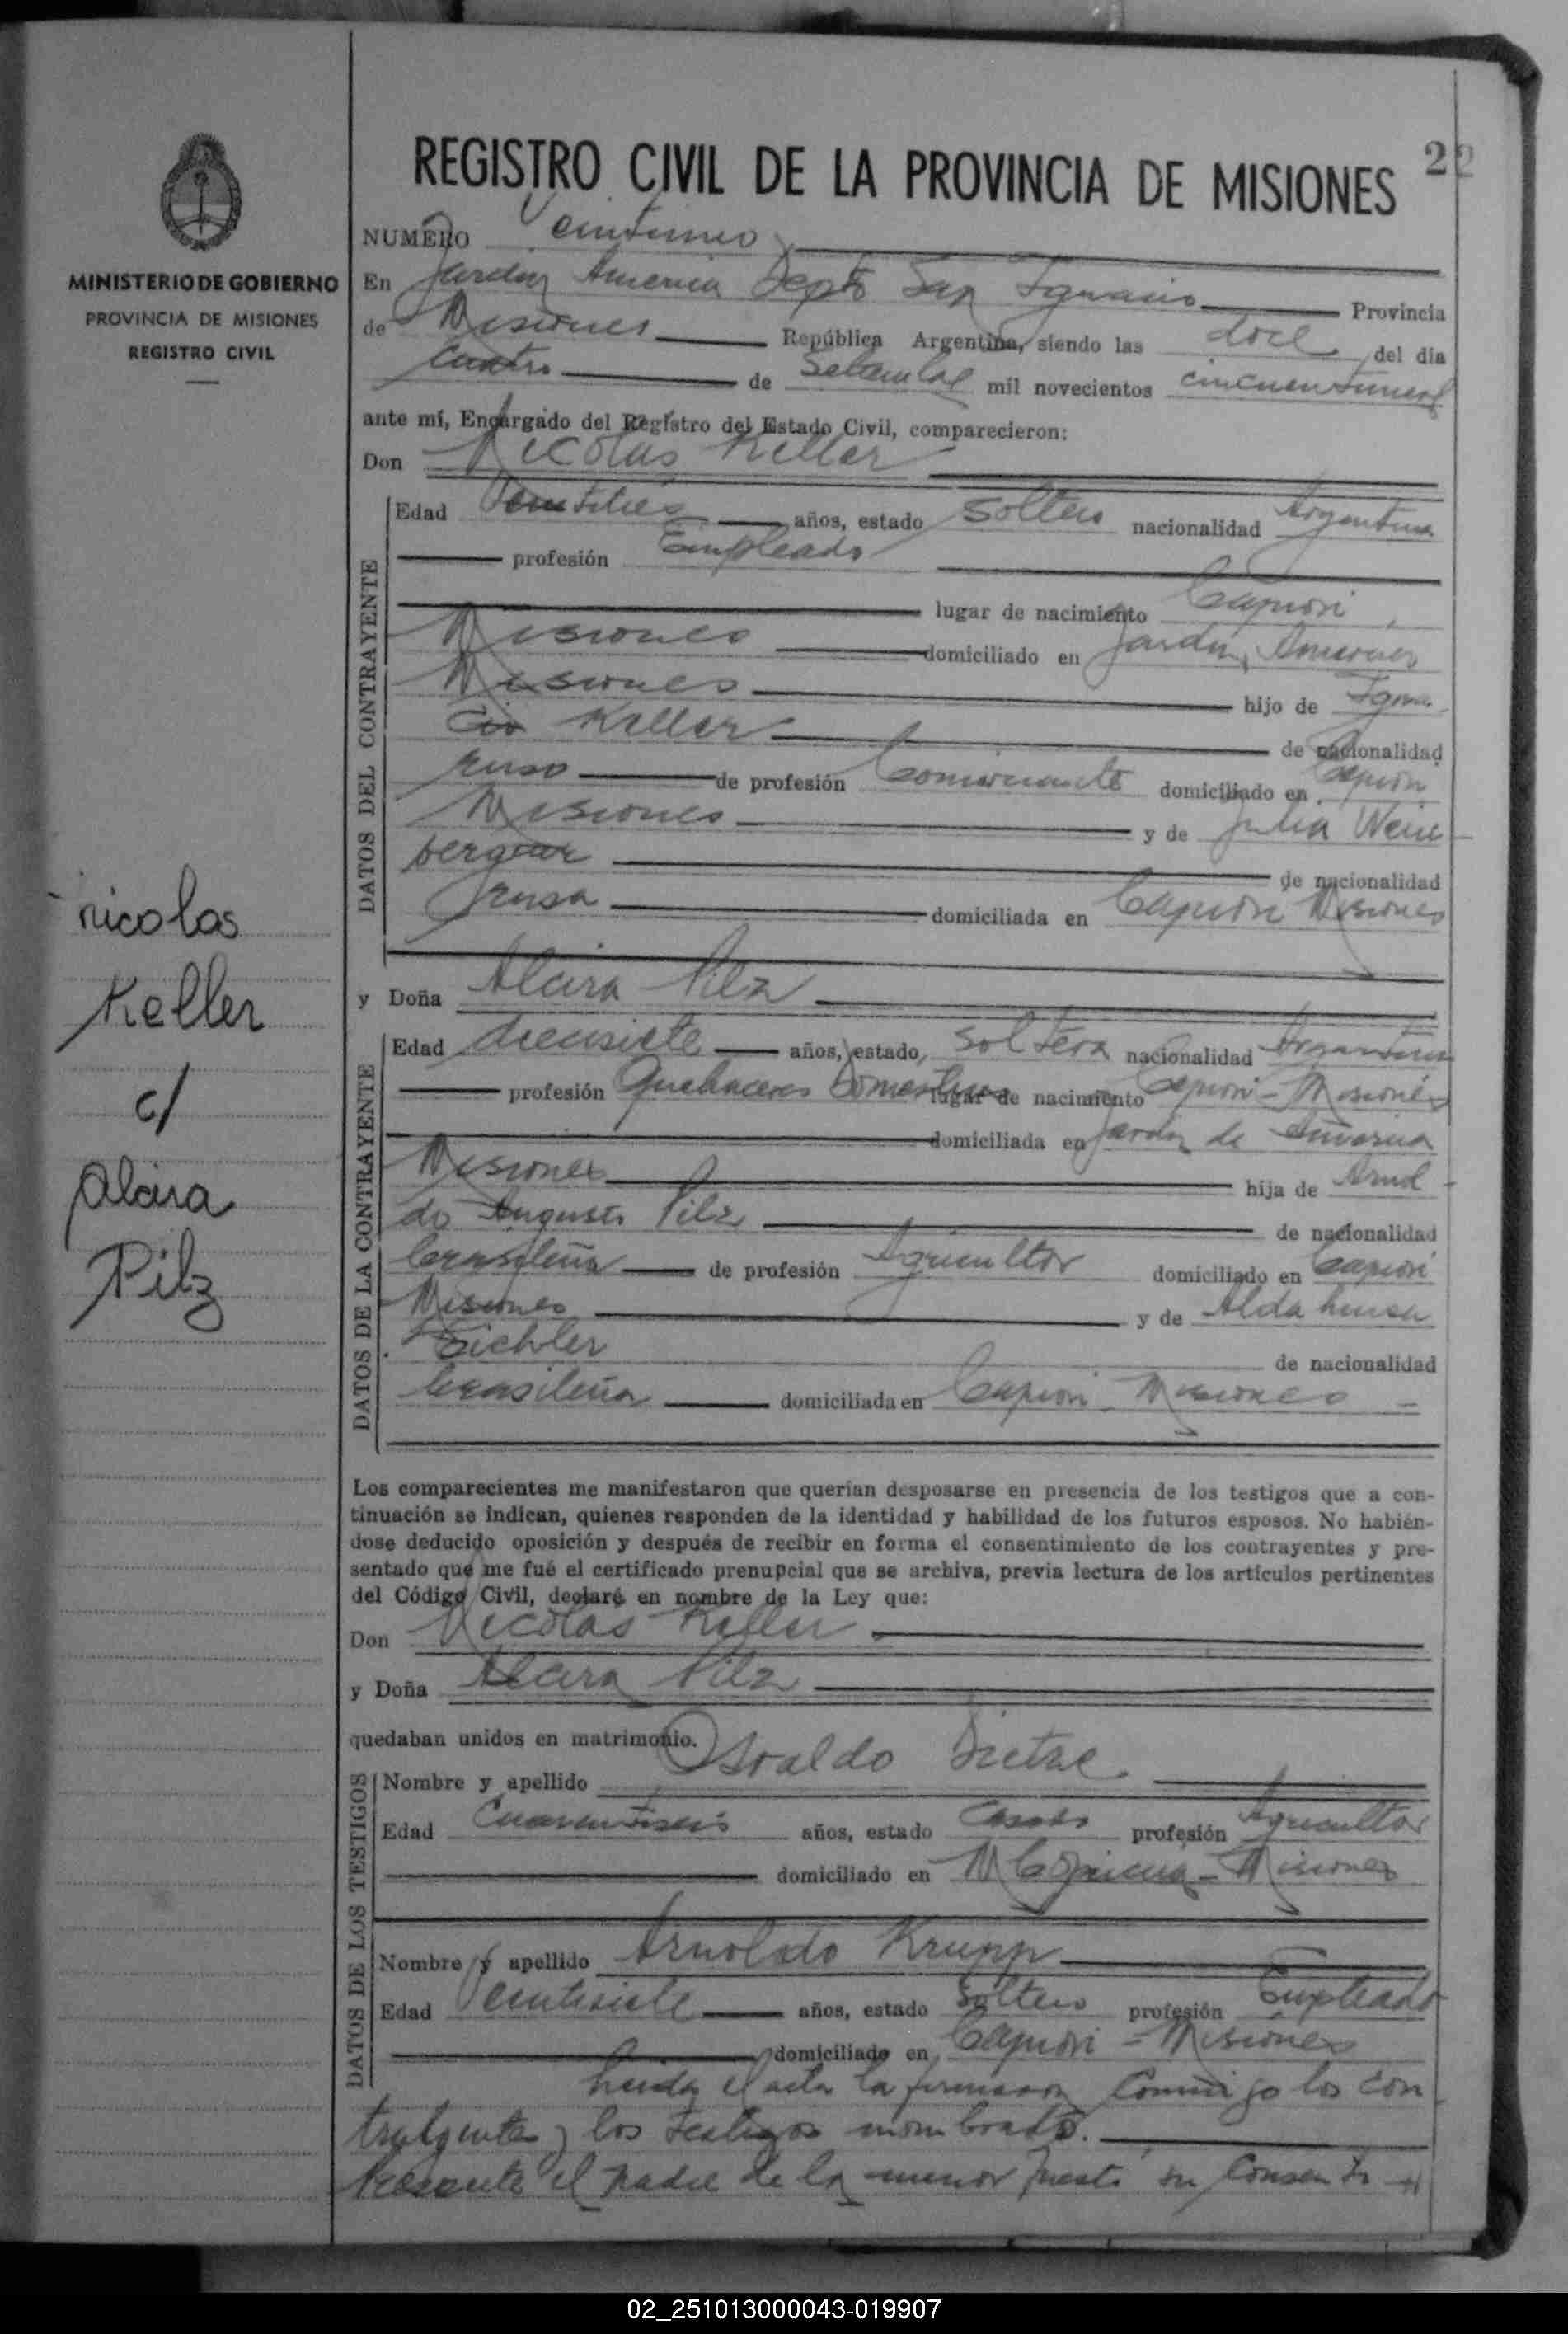 22
REGISTRO CIVIL DE LA PROVINCIA DE MISIONES
MINISTERIO DE GOBIERNO
PROVINCIA DE MISIONES
REGISTRO CIVIL
nicolas
Keller
c/
Alcira
Pilz
NUMERO Veintiuno
En Jardin America Depto San Ignacio Provincia
de Misiones República Argentina, siendo las doce del día
cuatro de Setiembre mil novecientos
ante mí, Encargado del Registro del Estado Civil, comparecieron:
Don Nicolas Keller
DATOS DEL CONTRAYENTE
Edad años, estado soltero nacionalidad Argentina
profesión Empleado
lugar de nacimiento Capiovi
Misiones domiciliado en Jardin America
Misiones hijo de Igna-
cio Keller de nacionalidad
ruso de profesión Comerciante domiciliado en Capiovi
Misiones y de Julia Wein
berger de nacionalidad
rusa domiciliada en Capiovi Misiones
y Doña Alcira Pilz
DATOS DE LA CONTRAYENTE
Edad diecisiete años, estado soltera nacionalidad Argentina
profesión Quehaceres Domesticos lugar de nacimiento Capiovi - Misiones
domiciliada en Jardin de America
Misiones hija de Arnol-
do Augusto Pilz de nacionalidad
brasileña de profesión Agricultor domiciliado en Capiovi
Misiones y de Alda
Eichler de nacionalidad
brasileña domiciliada en Capiovi - Misiones
Los comparecientes me manifestaron que querían desposarse en presencia de los testigos que a con-
tinuación se indican, quienes responden de la identidad y habilidad de los futuros esposos. No habién-
dose deducido oposición y después de recibir en forma el consentimiento de los contrayentes y pre-
sentado que me fué el certificado prenupcial que se archiva, previa lectura de los artículos pertinentes
del Código Civil, declaré en nombre de la Ley que:
Don Nicolas Keller
y Doña Alcira Pilz
quedaban unidos en matrimonio.
DATOS DE LOS TESTIGOS
Nombre y apellido Osvaldo Dietze
Edad Cuarentiseis años, estado Casado profesión Agricultor
domiciliado en Misiones
Nombre y apellido Arnoldo Krupp
Edad Veintisiete años, estado Soltero profesión Empleado
domiciliado en Capiovi - Misiones
leida el acta la firmaron Conmigo los con
trayentes y los testigos nombrados.
Presente el padre de la menor presta su Consenti
02_251013000043-019907